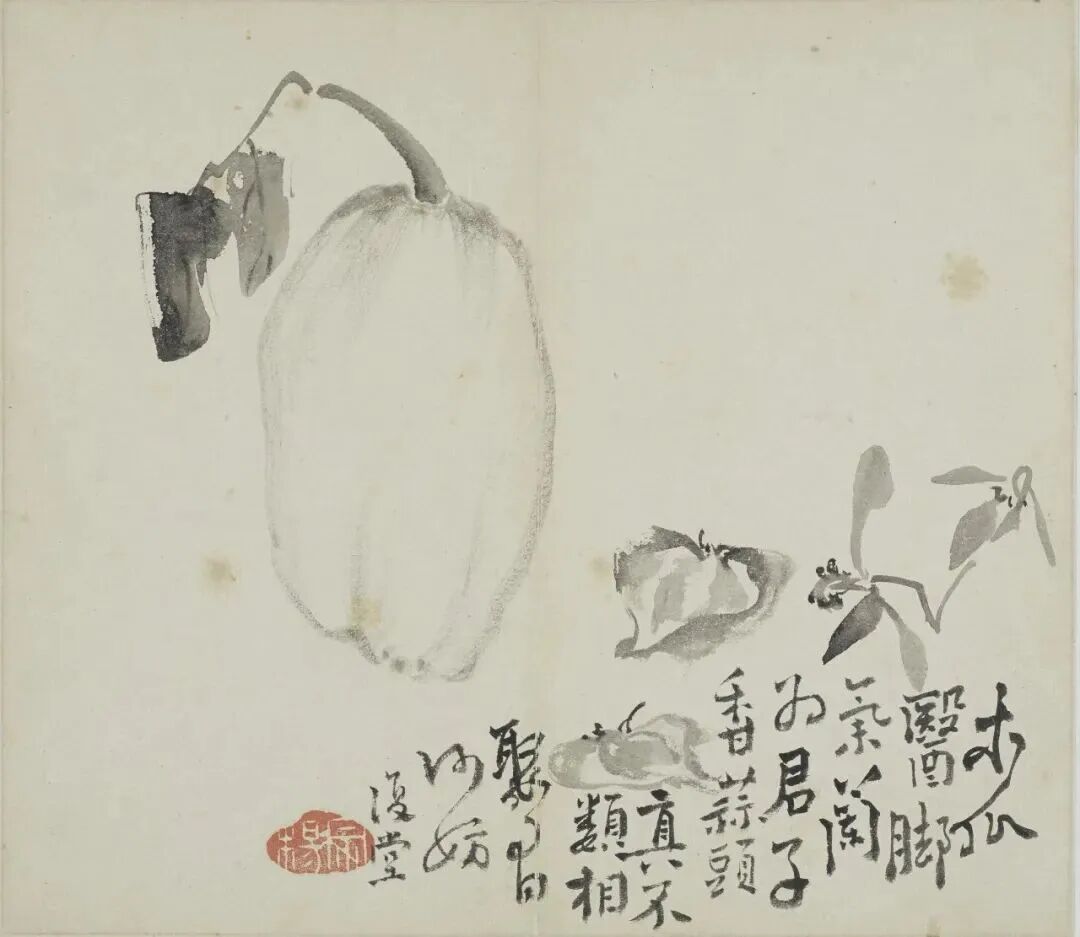 木瓜
醫脚
氣蘭
為君子
香蒜頭
真不
類相
聚有
何妨
復堂